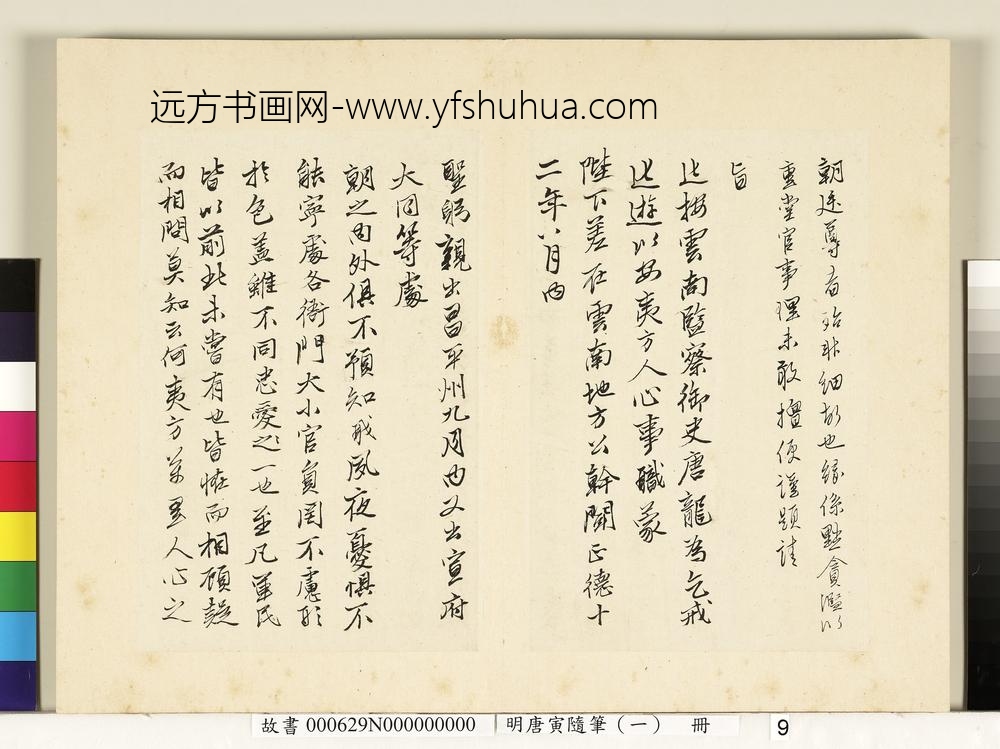 远方书画网-www.yfshuhua.com
朝廷辱者殆非細故也緣係點貪濫以
重堂官事理未敢擅便謹題請
旨
巡按雲南監察御史唐龍為乞戒
巡遊以安夷方人心事職蒙
陛下差在雲南地方公幹聞正德十
二年八月內
聖躬親出昌平州九月內又出宣府
大同等處
朝之內外俱不預知戒夙夜憂惧不
能寧處各衙門大小官員罔不慮形
於色蓋雖不同忠愛之一也至凡軍民
皆以前此未嘗有也皆恠而相顧疑
而相問莫知云何夷方萬里人心之
故書 000629N000000000 明唐寅隨筆（一） 冊 9